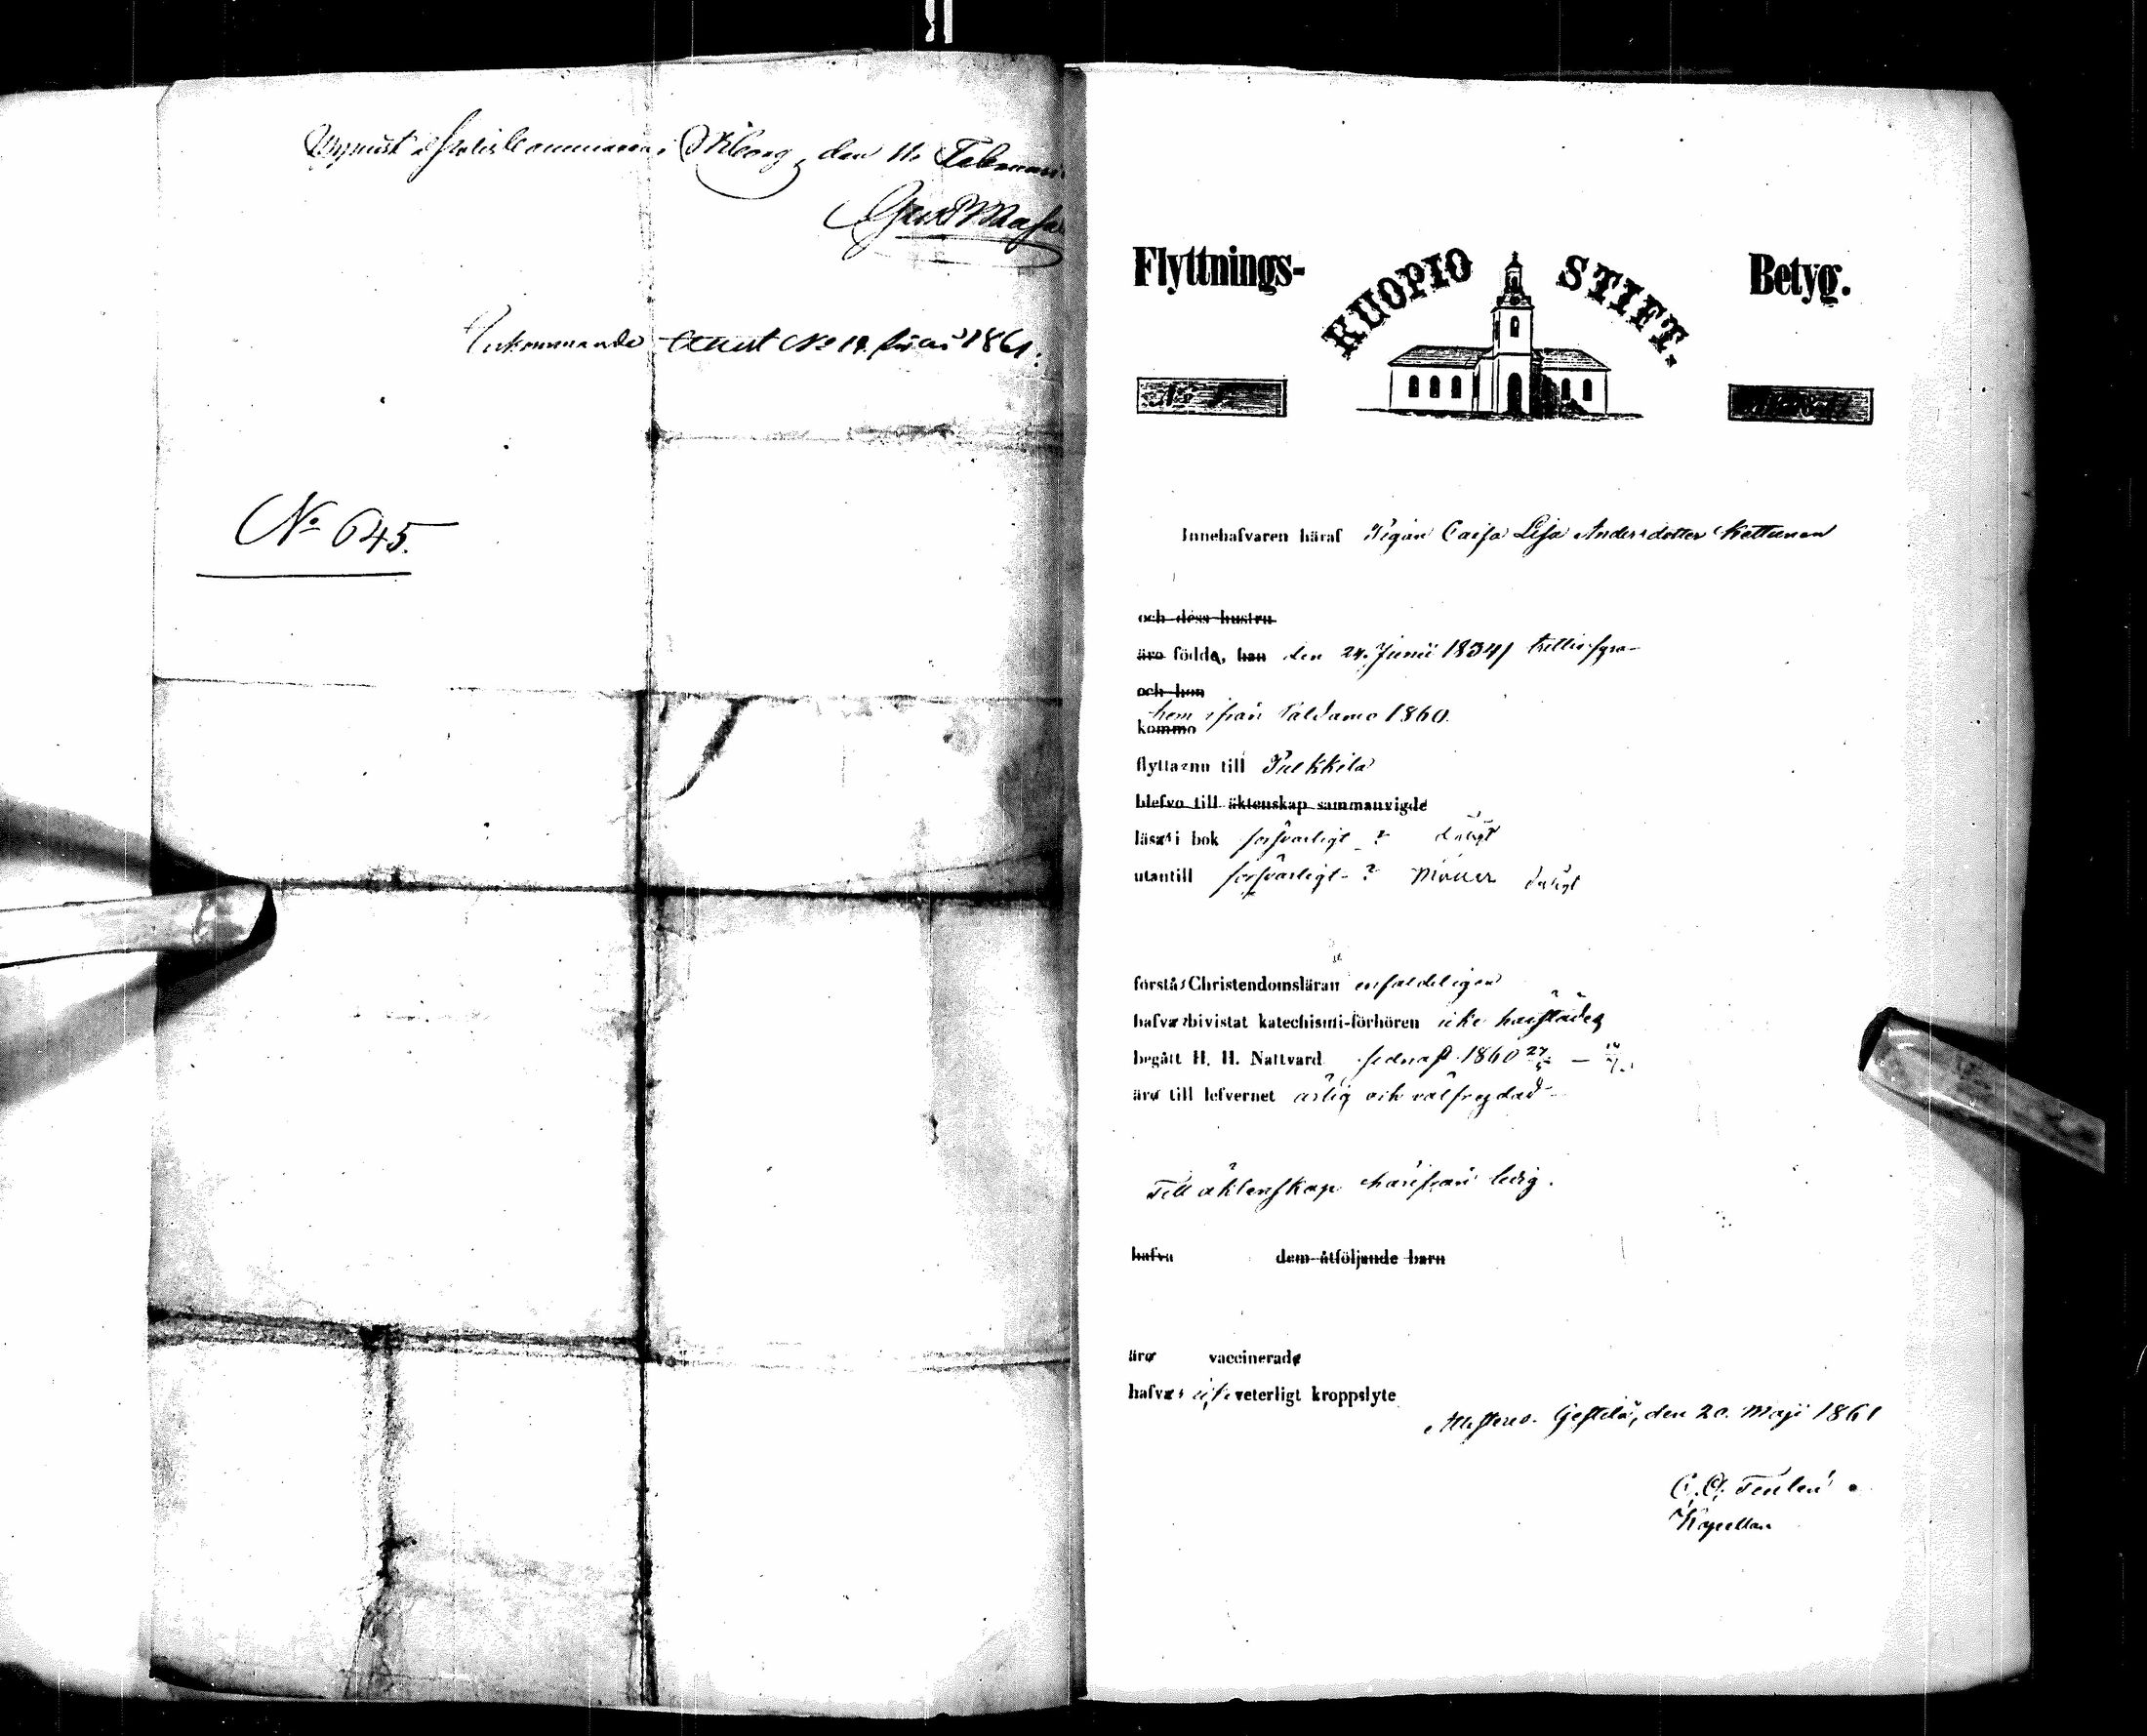 Uppvist i Poliskammaren i Wiborg, den 11 Februari
Inkommande attest No 19. Juni 1861.
No 645.
Flyttnings- KUOPIO STIFT. Betyg.
No 1.
Innehafvaren häraf Pigan Caisa Lisa Andersdotter Kettunen
och dess hustru
äro födde, han den 24. Junii 1834/ trettio fyra
och hon
kom ifrån Paldamo 1860.
kommo
flyttar nu till Pulkkila
blefvo till äktenskap sammanvigde
läser i bok försvarligt ? dåligt
utantill försvarligt ? dåligt
förstår Christendomsläran enfaldeligen
hafver bivistat katechismi-förhören icke härstädes
begått H. H. Nattvard sednast 1860
är till lefvernet ärlig och välfrejdad
Till äktenskap härifrån ledig.
hafva dem åtföljande barn
är vaccinerad
hafver icke veterligt kroppslyte
den 20. Maji 1861
Kapellan